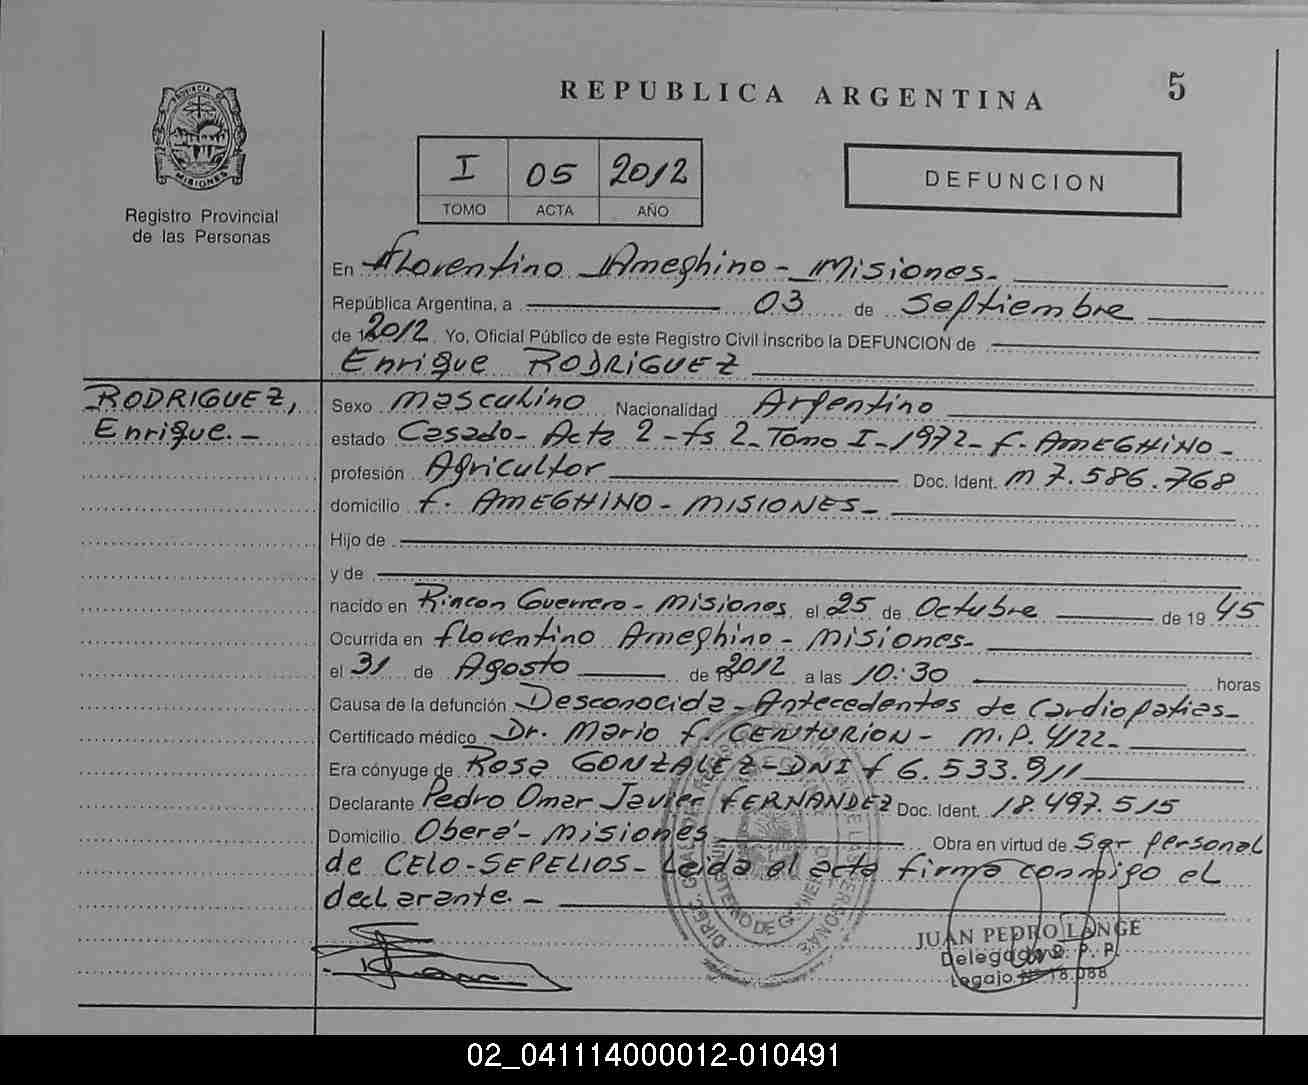 REPUBLICA ARGENTINA
5
PROVINCIA D
MISIONES
Registro Provincial
de las Personas
I 05 2012
TOMO ACTA AÑO
DEFUNCION
En Florentino Ameghino - Misiones.
República Argentina, a 03 de Septiembre
de 2012. Yo, Oficial Público de este Registro Civil inscribo la DEFUNCION de
Enrique RODRIGUEZ
RODRIGUEZ,
Enrique. -
Sexo masculino Nacionalidad Argentino
estado Casado - Acta 2 - fs 2 - Tomo I - 1972 - F. AMEGHINO -
profesión Agricultor Doc. Ident. M 7.586.768
domicilio F. AMEGHINO - MISIONES -
Hijo de
y de
nacido en Rincon Guerrero - Misiones el 25 de Octubre de 1945
Ocurrida en Florentino Ameghino - Misiones -
el 31 de Agosto de 2012 a las 10:30 horas
Causa de la defunción Desconocida - Antecedentes de Cardiopatias -
Certificado médico Dr. Mario F. CENTURION - M.P. 4122 -
Era cónyuge de Rosa GONZALEZ - DNI F 6.533.911
Declarante Pedro Omar Javier FERNANDEZ Doc. Ident. 18.497.515
Domicilio Oberá - Misiones Obra en virtud de Ser personal
de CELO - SEPELIOS - Leida el acta firma conmigo el
declarante. -
JUAN PEDRO LANGE
Delegado R. P. P.
Legajo Nº 18.088
02_041114000012-010491